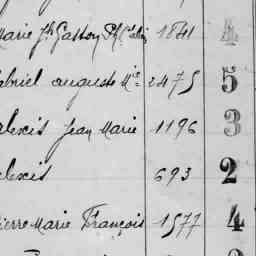 Marie Jh Gaston 1841 4
abriel auguste Mie 2475 5
alexis Jean Marie 1196 3
alexis 693 2
ierre Marie François 1577 4